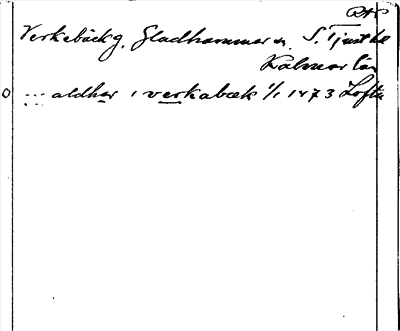 Verkebäck g. Gladhammar sn. S. Tjust hd
Kalmar län
... aldhær i verkabæk 1/1 1473 Lofta